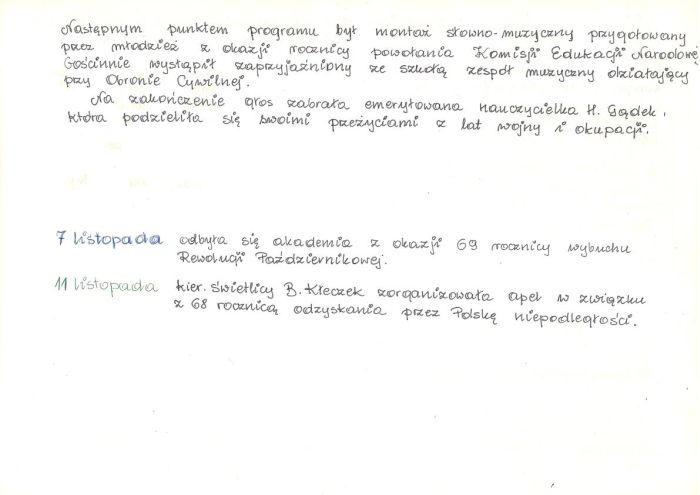 Następnym punktem programu był montaż słowno-muzyczny przygotowany
przez młodzież z okazji rocznicy powołania Komisji Edukacji Narodowej
Gościnnie wystąpił zaprzyjaźniony ze szkołą zespół muzyczny działający
przy Obronie Cywilnej.
Na zakończenie głos zabrała emerytowana nauczycielka H. Gądek,
która podzieliła się swoimi przeżyciami z lat wojny i okupacji.
7 listopada odbyła się akademia z okazji 69 rocznicy wybuchu
Rewolucji Październikowej.
11 listopada kier. świetlicy B. Kłeczek zorganizowała apel w związku
z 68 rocznicą odzyskania przez Polskę niepodległości.